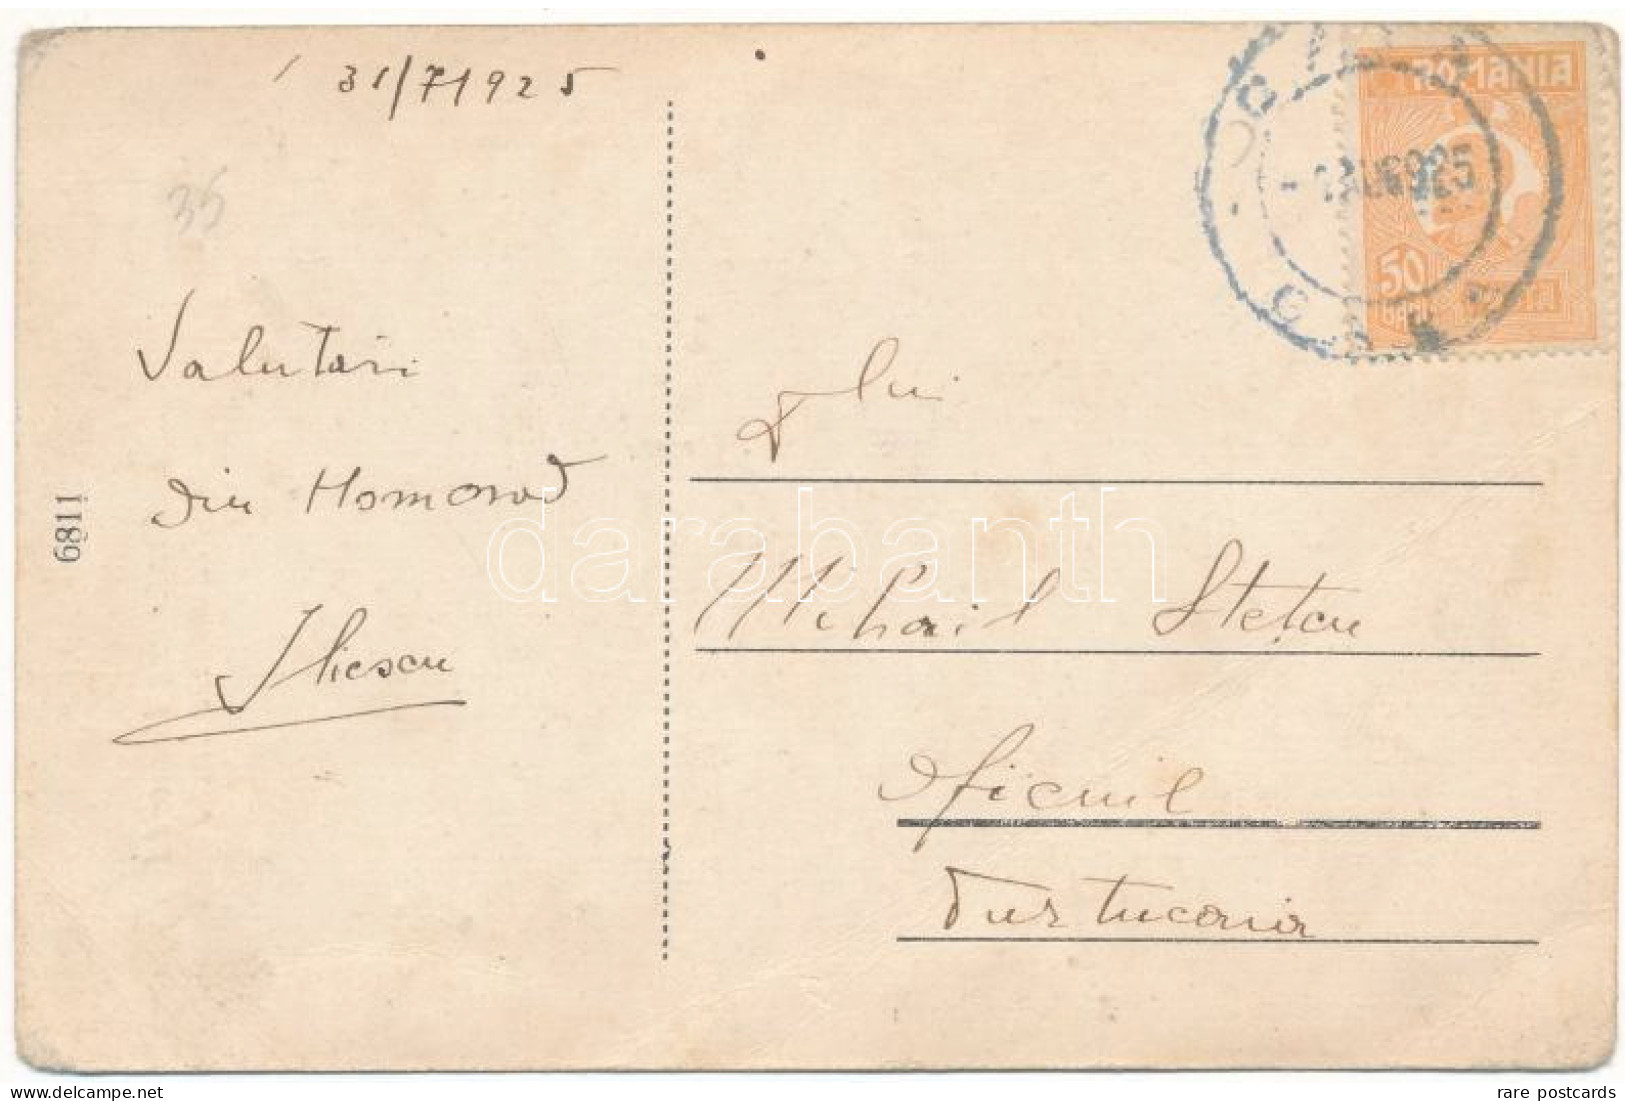 31/7/1925
35
Salutari
din Homorod
Iliescu
6811
ROMANIA
50
AUG 925
Dlui
Mihail Stețcu
Oficiul
Turtucaia
darabanth
rare postcards